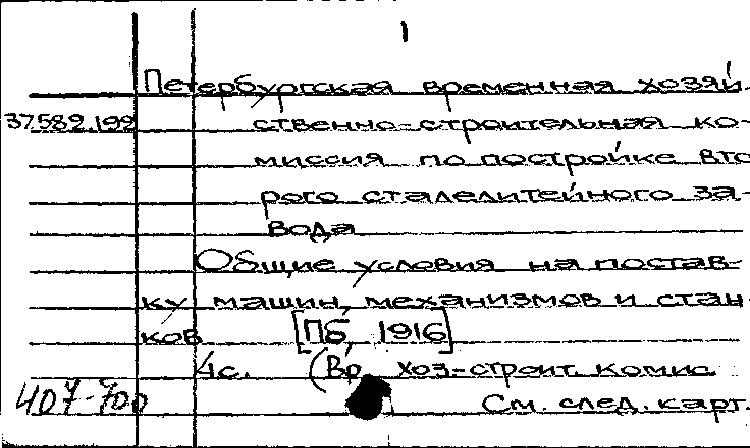 1
Петербургская временная хозяй-
37.582.199 ственно-строительная ко-
миссия по постройке вто
рого сталелитейного за-
вода
Общие условия на постав-
ку машин, механизмов и стан
ков [Пб, 1916]
4с. (Вр. хоз-строит. комис
407-700 См. след. карт.